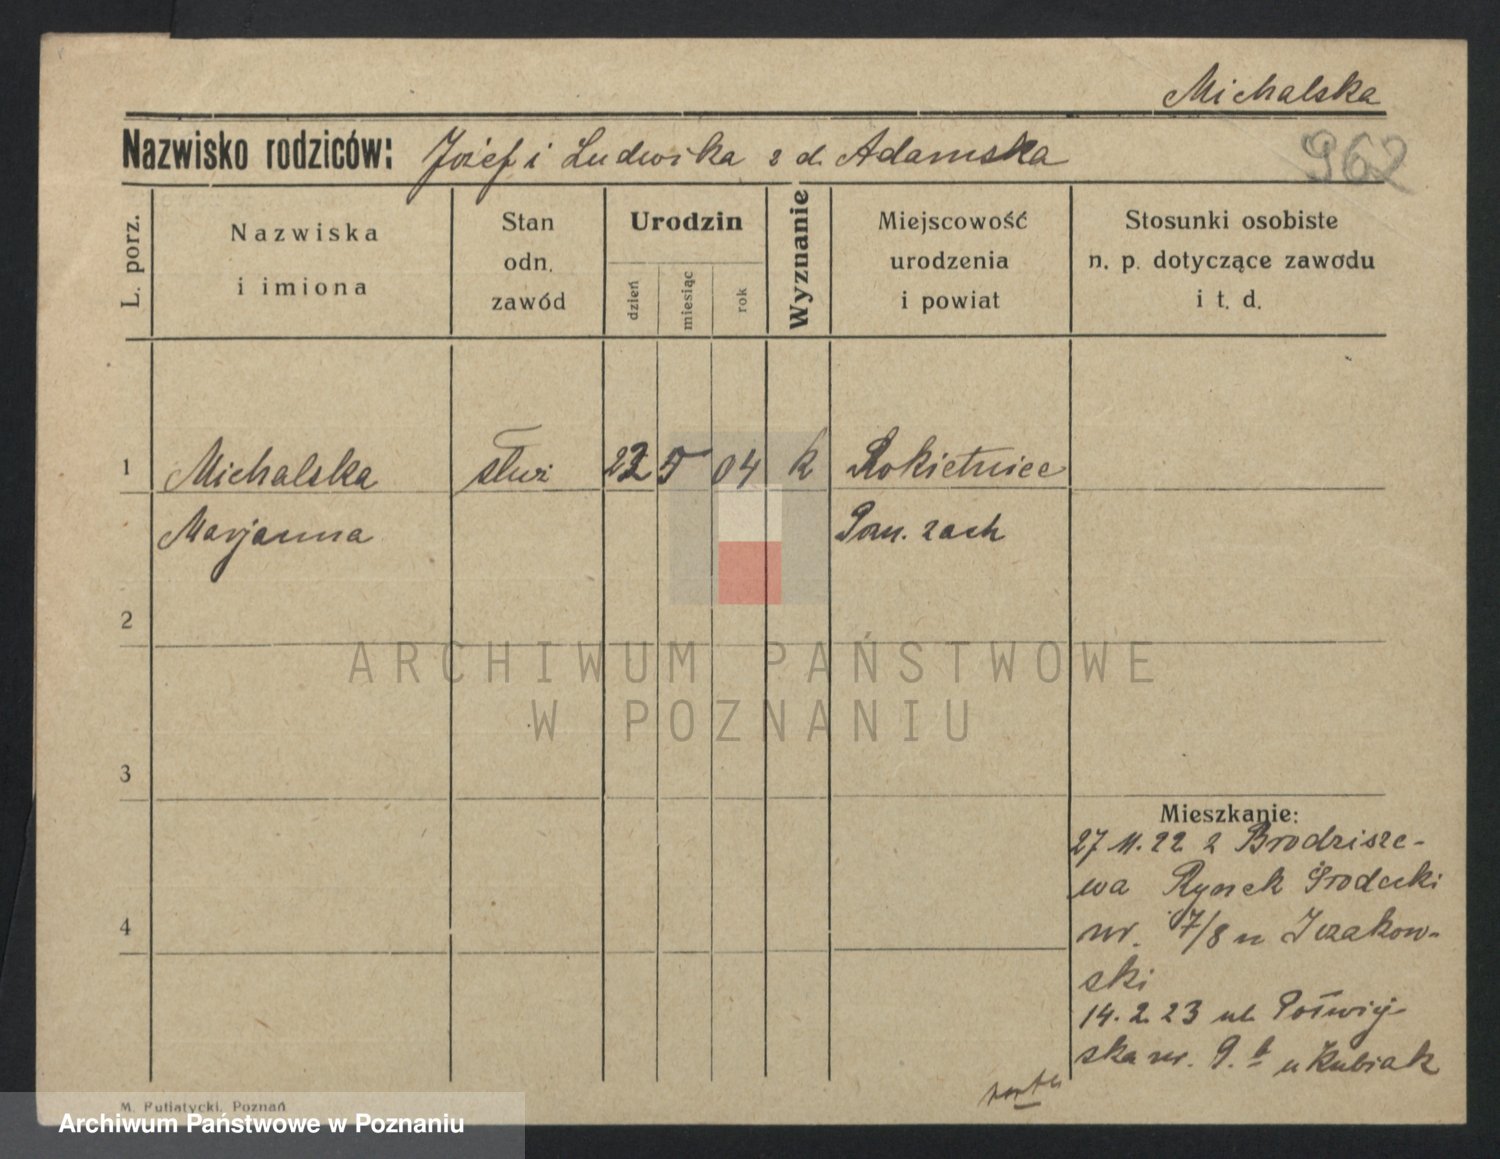 Michalska
Nazwisko rodziców: Józef i Ludwika z d. Adamska
962
L. porz.
Nazwiska
i imiona
Stan
odn.
zawód
Urodzin
dzień
miesiąc
rok
Wyznanie
Miejscowość
urodzenia
i powiat
Stosunki osobiste
n. p. dotyczące zawodu
i t. d.
1 Michalska służ 22 5 04 k Rokietnice
Marjanna Pozn. zach
2
ARCHIWUM PAŃSTWOWE
W POZNANIU
3
Mieszkanie:
27 11. 22 z Brodzisze-
wa Rynek Śródecki
nr. 7/8 u
ski
14. 2. 23 ul.
ska nr. 9. u Kubiak
4
M. Putiatycki, Poznań
Archiwum Państwowe w Poznaniu